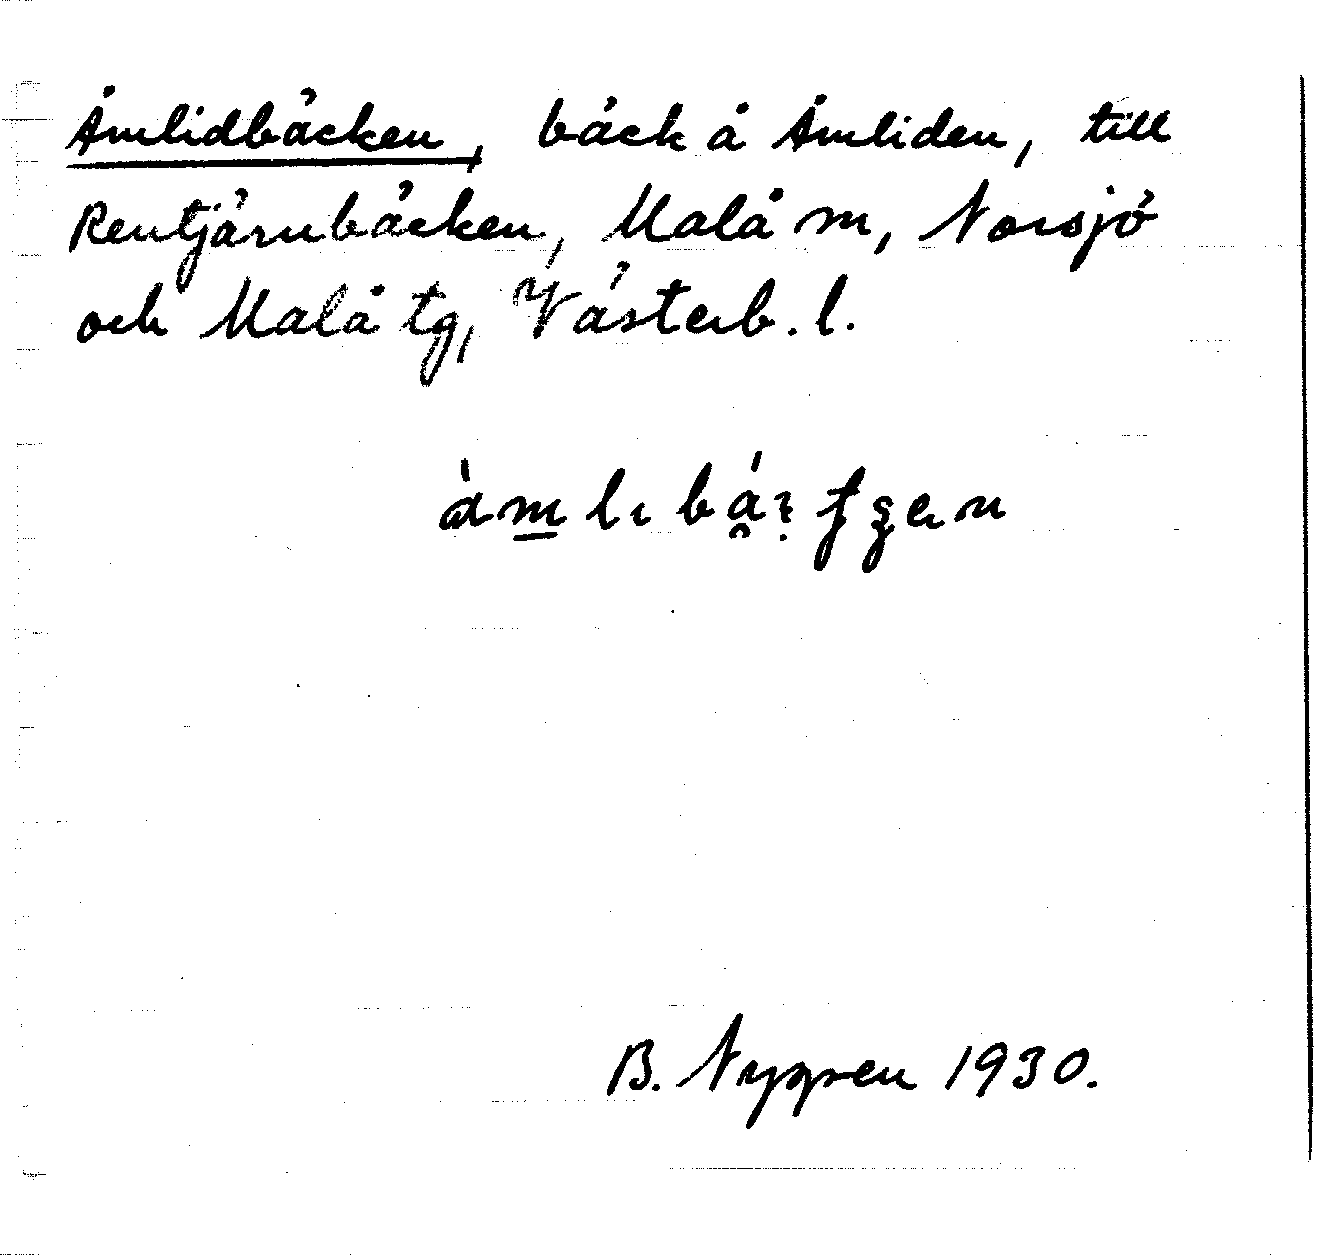 Åmlidbäcken, bäck å Åmliden, till
Rentjärnbäcken, Malå m, Norsjö
och Malå tg, Västerb. l.
B. Nygren 1930.